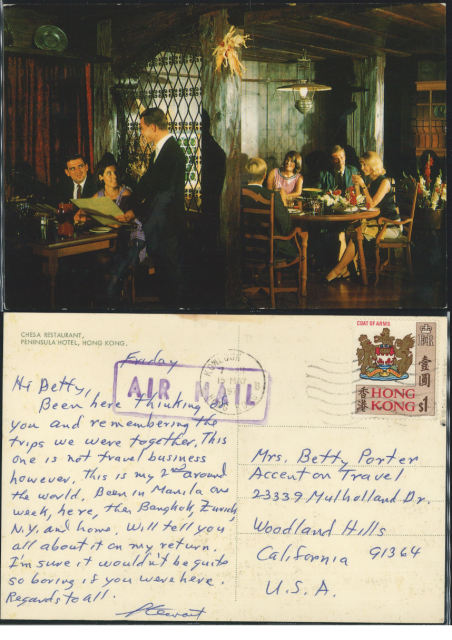 CHESA RESTAURANT,
PENINSULA HOTEL, HONG KONG.
Friday
Hi Betty,
Been here thinking of
you and remembering the
trips we were together. This
one is not travel business
however. This is my 2nd around
the world. Been in Manila one
week, here, then Bangkok, Zurich,
N.Y. and home. Will tell you
all about it on my return.
I'm sure it wouldn't be quite
so boring if you were here.
Regards to all.
Stewart
AIR MAIL
KOWLOON
COAT OF ARMS
壹圓
香港
HONG
KONG $1
Mrs. Betty Porter
Accent on Travel
23339 Mulholland Dr.
Woodland Hills
California 91364
U.S.A.